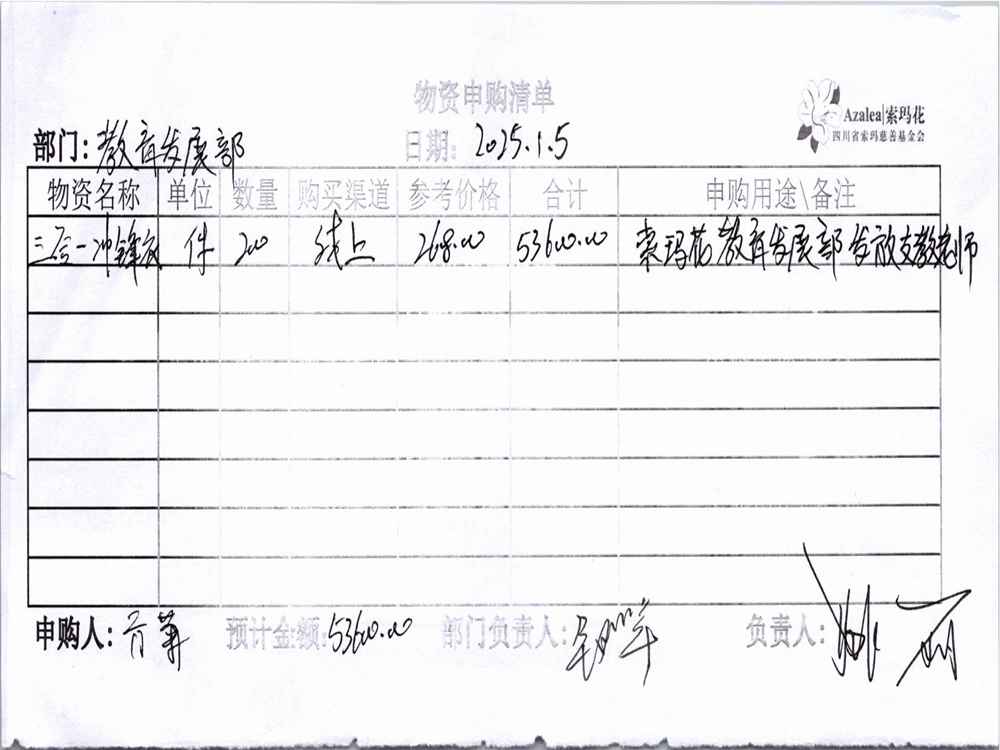 物资申购清单
Azalea|索玛花
四川省索玛慈善基金会
部门：教育发展部 日期：2025.1.5
物资名称 单位 数量 购买渠道 参考价格 合计 申购用途\备注
三合一冲锋衣 件 200 线上 268.00 53600.00 索玛花教育发展部发放支教老师
申购人： 预计金额：53600.00 部门负责人： 负责人：